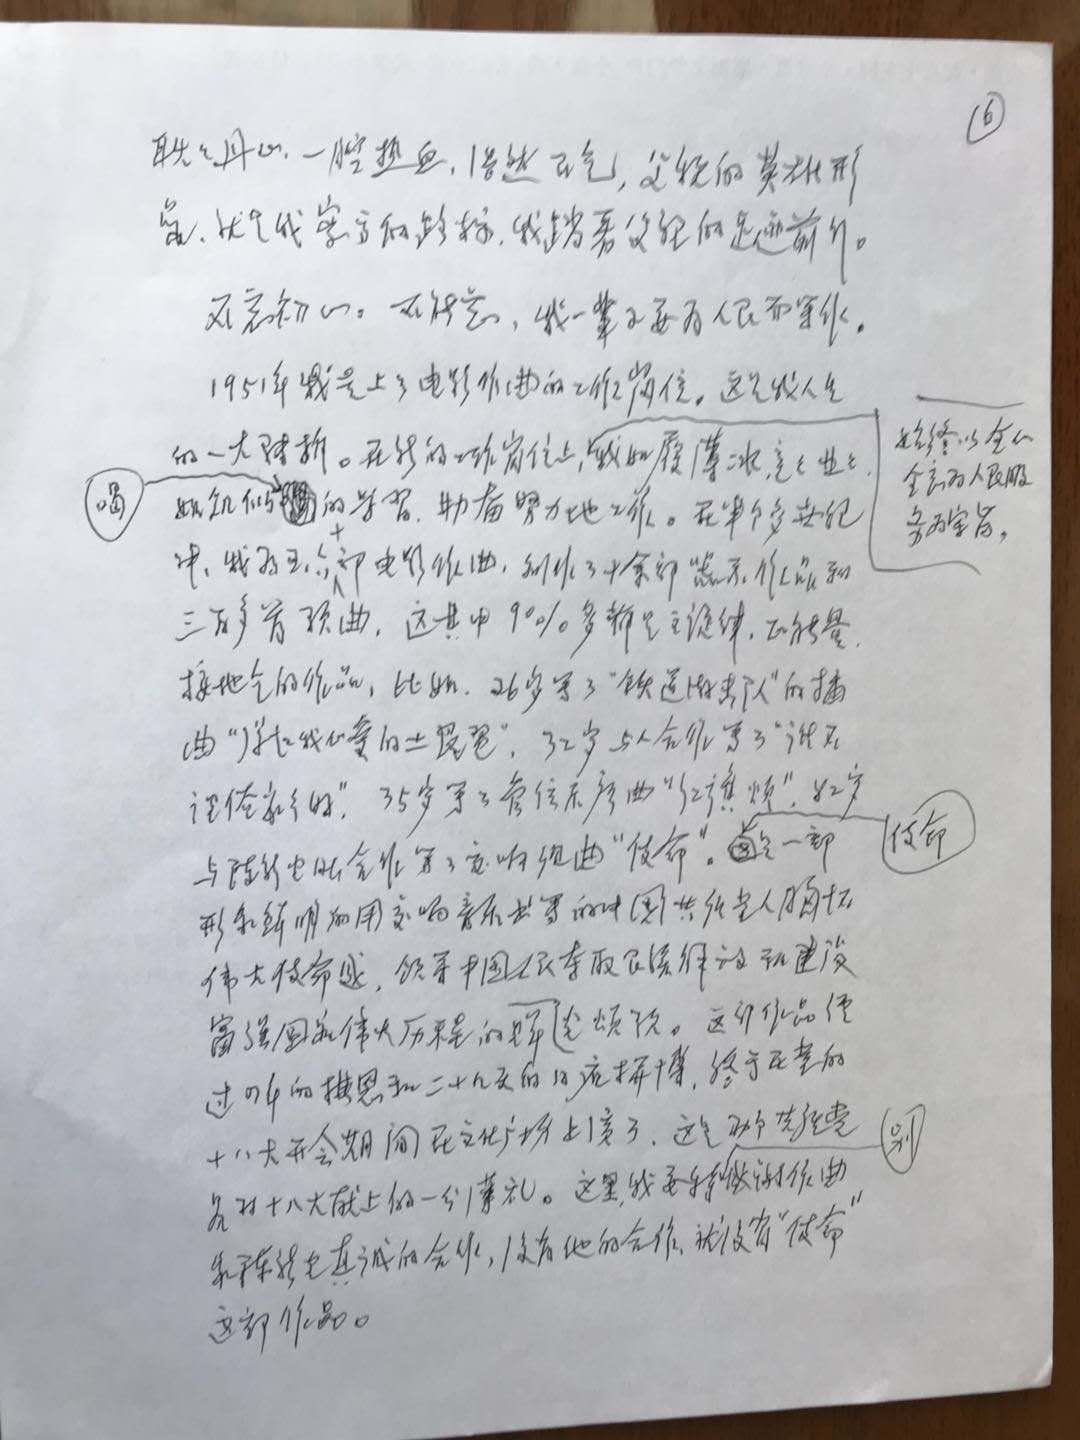 6
耿耿丹心、一腔热血、浩然正气,父亲的英雄形
象、就是我字方的路标,我踏着父亲的足迹前行。
不忘初心。不能忘,我一辈子要为人民而写作。
1951年我走上了电影作曲的工作岗位。这是我人生
的一大转折。在新的工作岗位上,我如履薄冰,兢兢业业,
始终以全心
全意为人民服
务为宗旨,
渴
如饥似的学习,勤奋努力地工作。在半个多世纪
中,我为五六十部电影作曲,创作了十余部器乐作品和
三百多首歌曲,这其中90%多都是主旋律,正能量,
接地气的作品,比如,26岁写了“铁道游击队”的插
曲“弹起我心爱的土琵琶”,32岁与人合作写了“谁不
说俺家乡好”,35岁写了管弦乐序曲“红旗颂”,82岁
与陈新光合作写了交响组曲“使命”。是一部
使命
形象鲜明的用交响音乐书写的中国共产党人胸怀
伟大使命感,领导中国人民争取民族解放和建设
富强国家伟大历程的辉煌颂歌。这部作品经
过四年的构思和二十九天的日夜拼搏,终于在党的
十八大开会期间在文化广场上演了,这是两个共产党
别
员对十八大献上的一份薄礼。这里,我要特别感谢作曲
家陈新光真诚的合作,没有他的合作,就没有“使命”
这部作品。